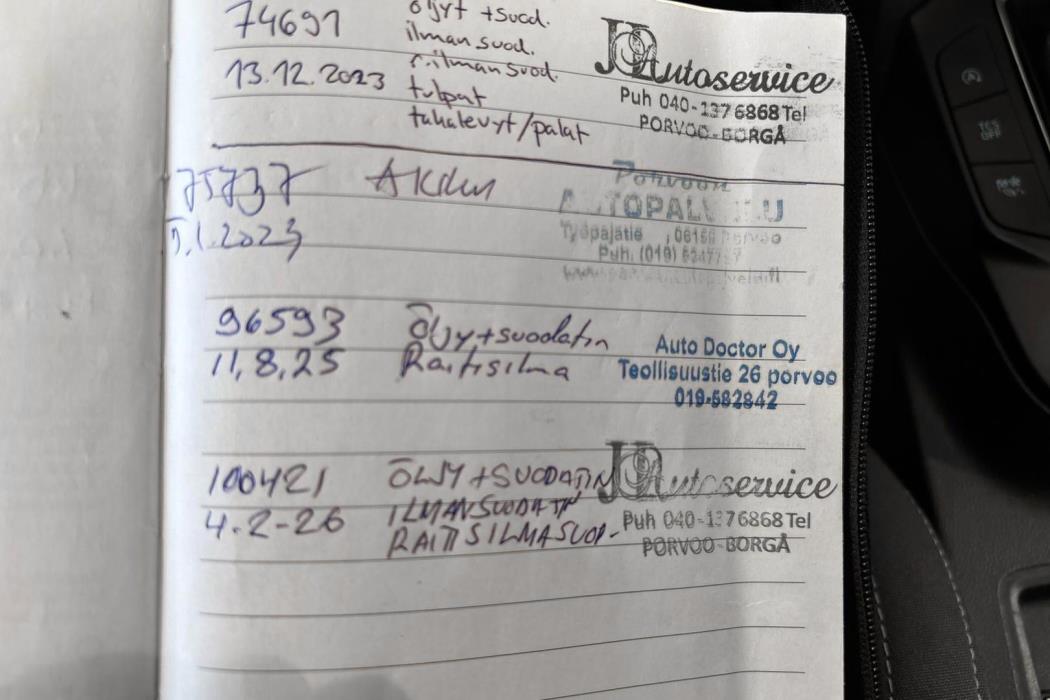 74691 öljyt + suod.
ilman suod.
13.12.2023 r.ilman suod.
tulpat
takalevyt/palat
JO Autoservice
Puh 040-137 6868 Tel
PORVOO-BORGÅ
75737 AKKU
5.1.2023
Porvoon
AUTOPALVELU
Työpajatie , 06150 Porvoo
Puh. (019)
96593 Öljy + suodatin
11,8,25 Raitisilma
Auto Doctor Oy
Teollisuustie 26 porvoo
019-582842
100421 ÖLJY + SUODATIN
ILMANSUODATIN
4.2-26 RAITISILMASUOD-
JO Autoservice
Puh 040-137 6868 Tel
PORVOO-BORGÅ
TCS
OFF